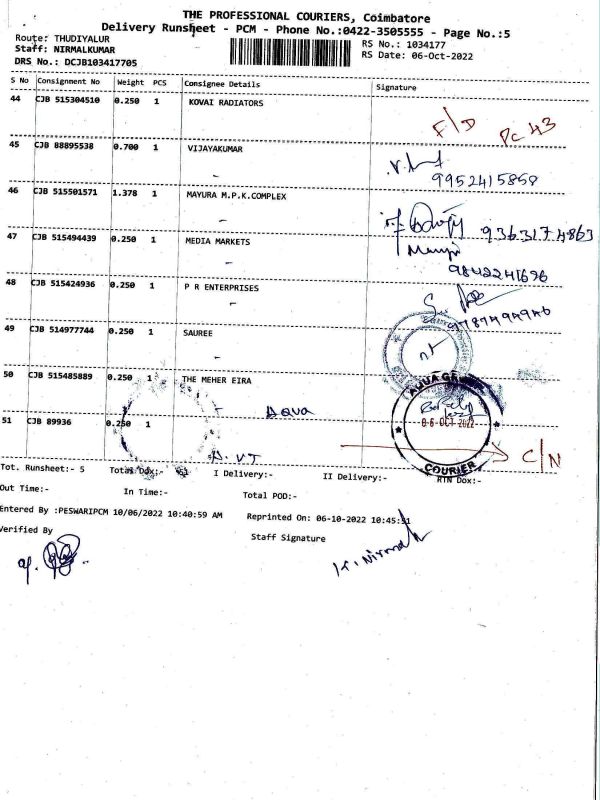 THE PROFESSIONAL COURIERS, Coimbatore
Delivery Runsheet - PCM - Phone No.:0422-3505555 - Page No.:5
Route: THUDIYALUR
Staff: NIRMALKUMAR
DRS No.: DCJB103417705
RS No.: 1034177
RS Date: 06-Oct-2022
S No Consignment No Weight PCS Consignee Details Signature
44 CJB 515304510 0.250 1 KOVAI RADIATORS
F/D PC 43
45 CJB 88895538 0.700 1 VIJAYAKUMAR
-
9952415858
46 CJB 515501571 1.378 1 MAYURA M.P.K.COMPLEX
-
9363174863
47 CJB 515494439 0.250 1 MEDIA MARKETS
-
9842241696
48 CJB 515424936 0.250 1 P R ENTERPRISES
-
9789494946
49 CJB 514977744 0.250 1 SAUREE
-
50 CJB 515485889 0.250 1 THE MEHER EIRA
-
51 CJB 89936 0.250 1
Aqua
06 OCT 2022
COURIER
C/N
Tot. Runsheet:- 5 Total Dox:- 51 I Delivery:- II Delivery:- RTN Dox:-
Out Time:- In Time:- Total POD:-
Entered By :PESWARIPCM 10/06/2022 10:40:59 AM Reprinted On: 06-10-2022 10:45:51
Verified By Staff Signature
K. Nirmal